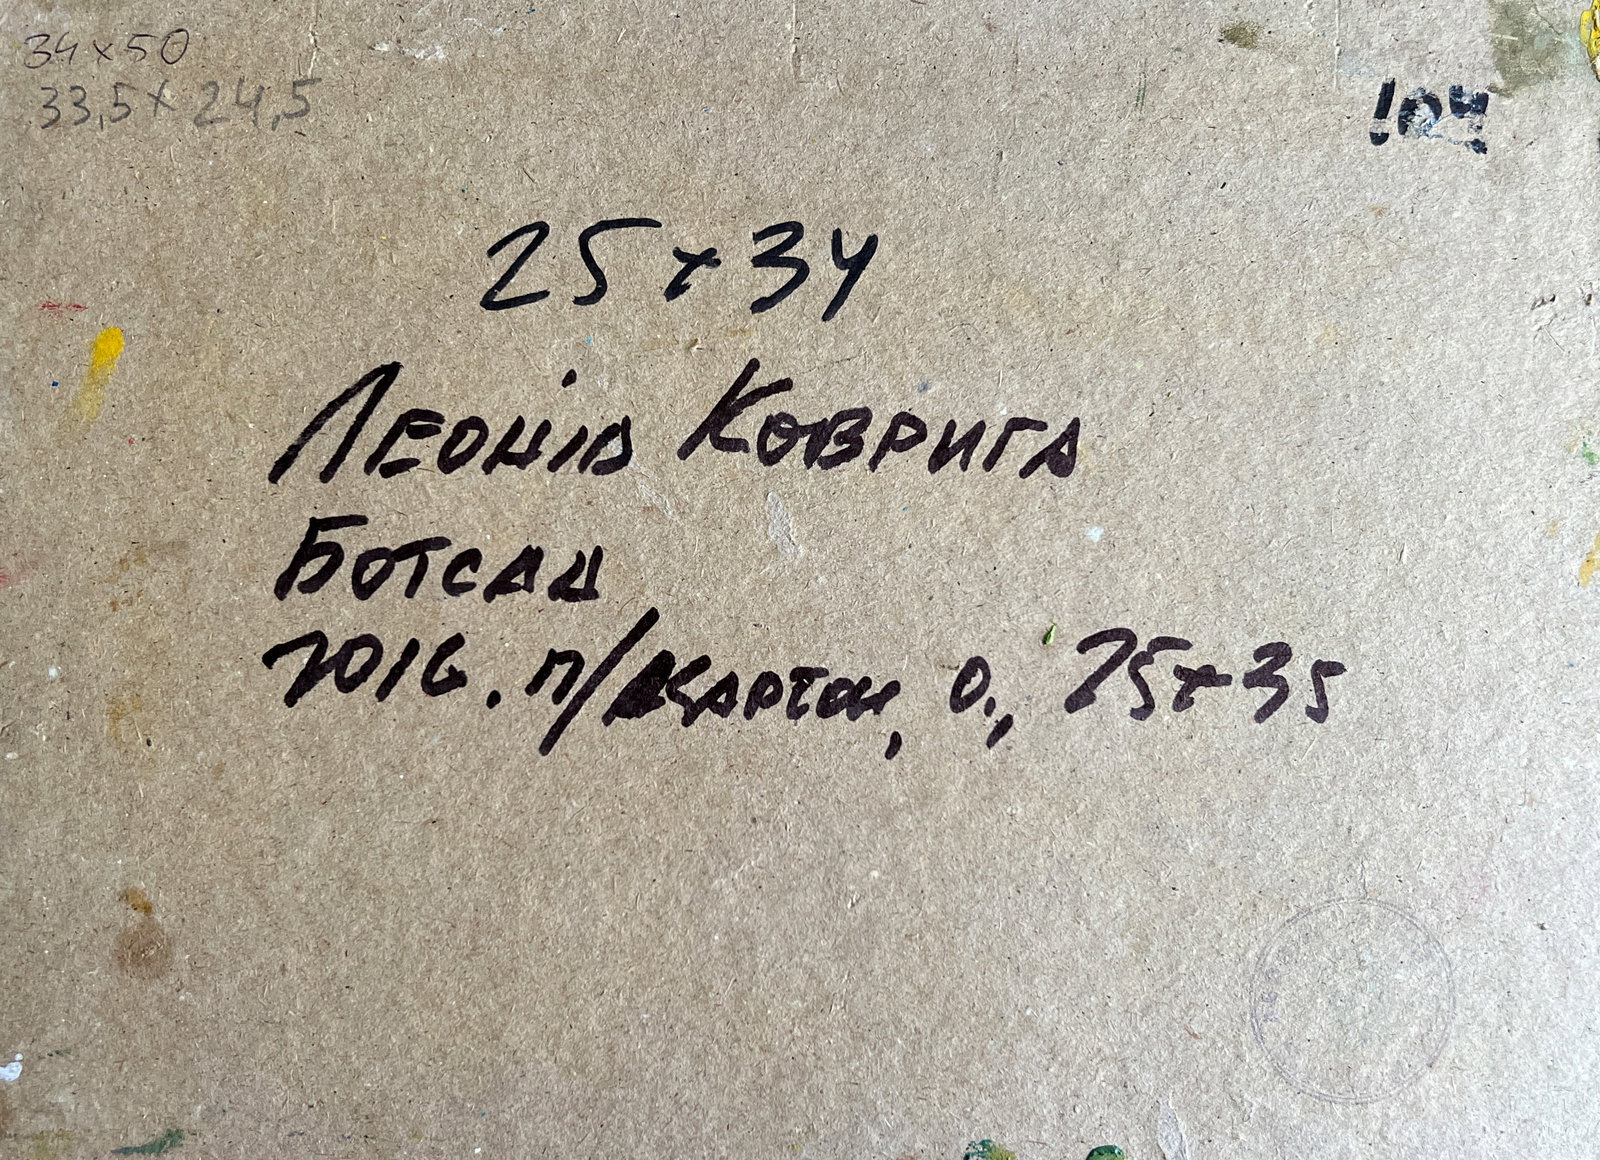 34x50
33,5x24,5
25x34
Леонід Коврига
Ботсад
2016. п/картон, о., 25x35